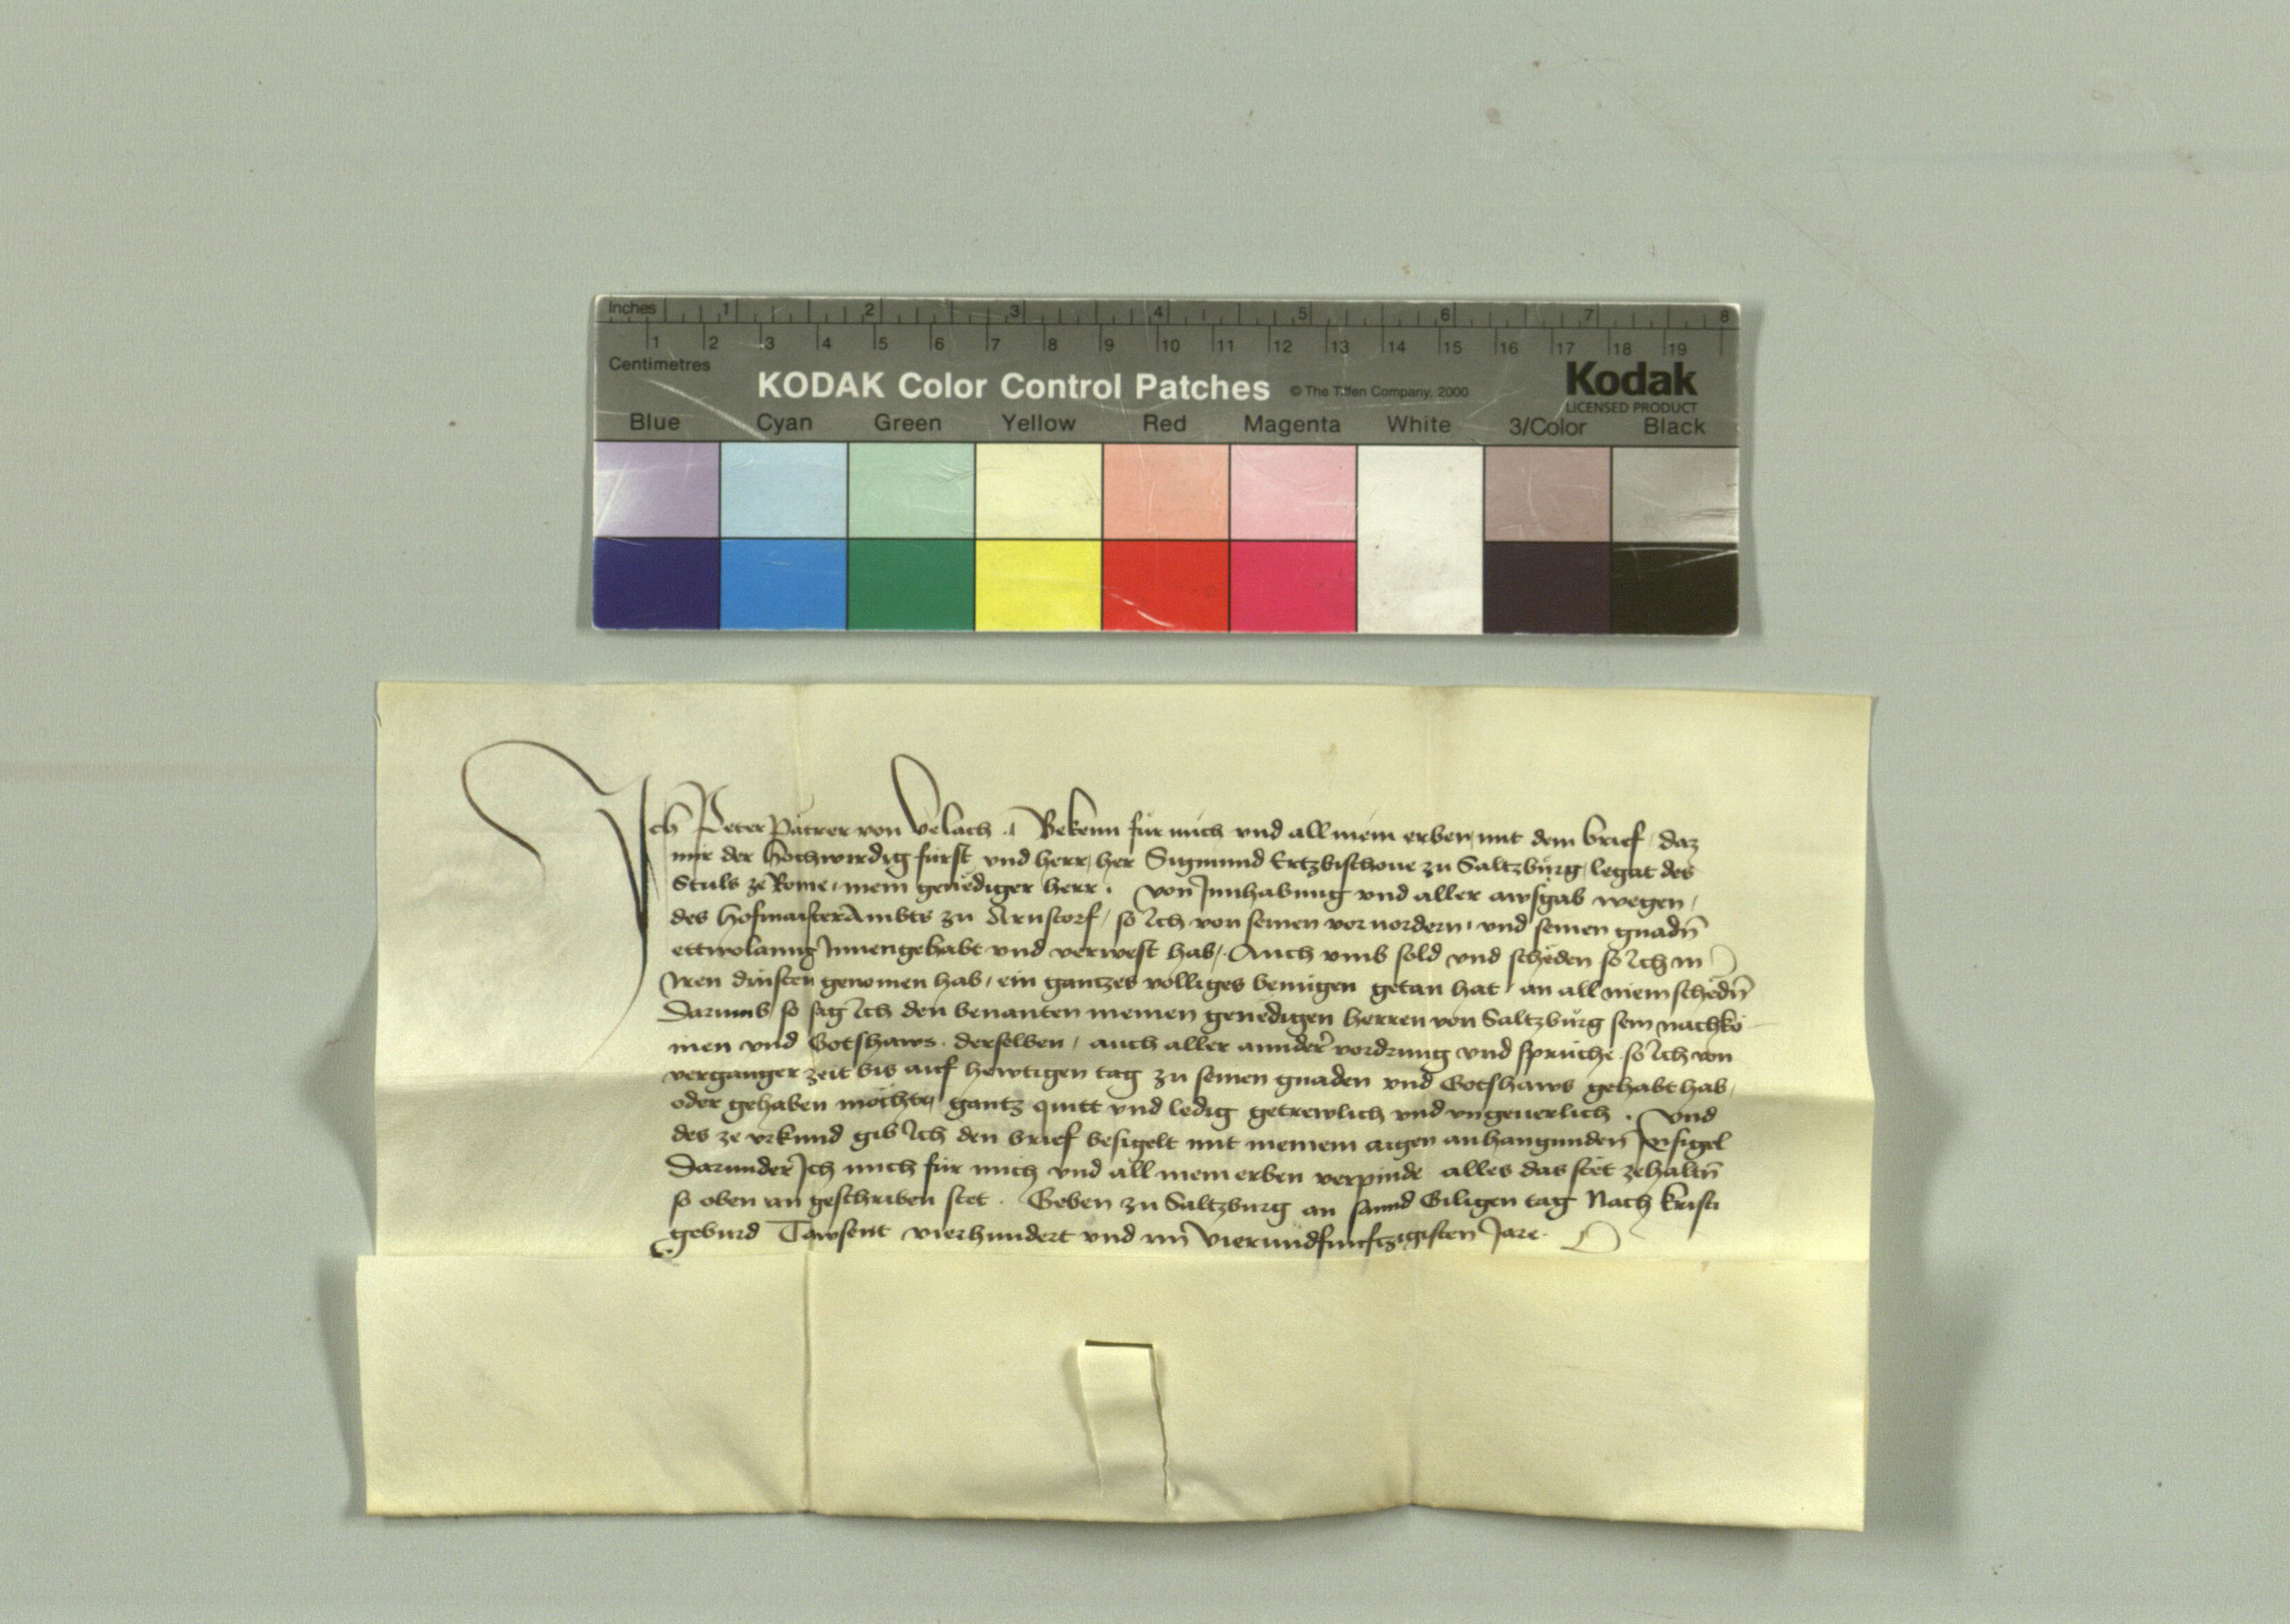 Inches 1 2 3 4 5 6 7 8
1 2 3 4 5 6 7 8 9 10 11 12 13 14 15 16 17 18 19
Centimetres
KODAK Color Control Patches © The Tiffen Company, 2000 Kodak
LICENSED PRODUCT
Blue Cyan Green Yellow Red Magenta White 3/Color Black
Ich Peter Pätrer von Velach . Bekenn für mich vnd all mein erben mit dem brief / daz
mir der hochwirdig fürst vnd herr / her Sigmund Ertzbischoue zu Saltzburg / legat des
Stuls ze Rome / mein genediger herr . von Innhabung vnd aller awsgab wegen /
des hofmaisterAmbts zu Arnstorf / so Ich von seinen voruordern / vnd seinen gnadn̄
ettwolanng Innengehabt vnd verwest hab / Auch vmb sold vnd scheden so Ich in
Iren dinsten genomen hab / ein gantzes volliges benügen getan hat / an all mein schedn̄
Darumb / so sag Ich den benanten meinen genedigen herren von Saltzburg sein nachko
men vnd Gotshaws . derselben / auch aller annder vordrung vnd sprüche so Ich von
verganger zeit bis auf hewtigen tag zu seinen gnaden vnd Gotshaws gehabt hab /
oder gehaben möchte / gantz quitt vnd ledig getrewlich vnd vngeuerlich . Vnd
des ze vrkund gib Ich den brief besigelt mit meinem aigen anhangunden Insigel
Darunder Ich mich für mich vnd all mein erben verpinde alles das stet zehaltn̄
so oben an geschriben stet . Geben zu Saltzburg an sannd Giligen tag Nach kristi
geburd Tawsent vierhundert vnd im̄ vierundfunftzigisten Jare .